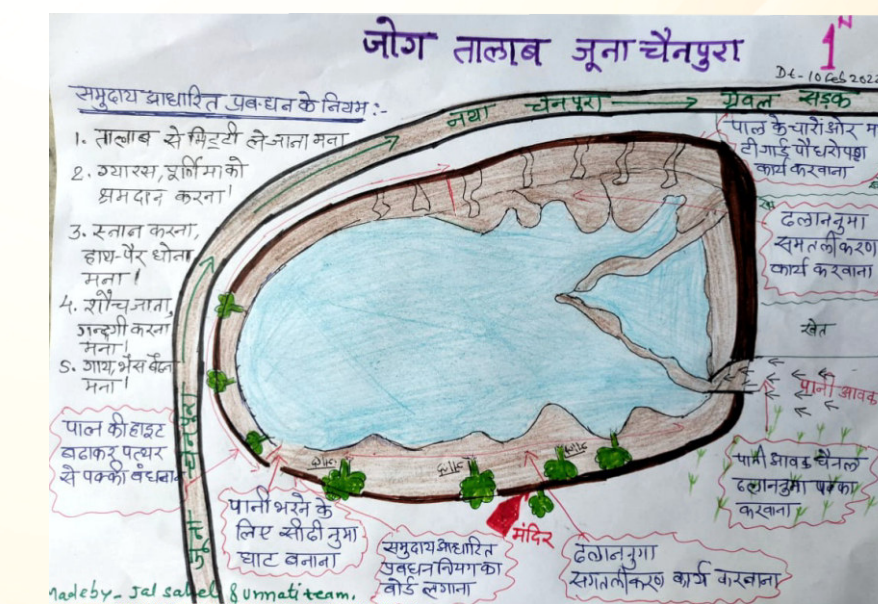 जोग तालाब जूना चैनपुरा
1
N
Dt-10 Feb 2022
समुदाय आधारित प्रबन्धन के नियम:-
1. तालाब से मिट्टी ले जाना मना
2. ग्यारस, पूर्णिमा को
श्रमदान करना!
3. स्नान करना,
हाथ-पैर धोना
मना!
4. शौच जाना,
गन्दगी करना
मना!
5. गाय, भैंस
मना!
नया चैनपुरा
ग्रेवल सड़क
पाल के चारों ओर
टी गार्ड पौधरोपण
कार्य करवाना
ढलाननुमा
समतलीकरण
कार्य करवाना
खेत
पानी आवक
पानी आवक चैनल
ढलाननुमा पक्का
करवाना
पाल की हाइट
बढाकर पत्थर
से पक्की
जूना चैनपुरा
पानी भरने के
लिए सीढी नुमा
घाट बनाना
समुदाय आधारित
प्रबधन नियम का
बोर्ड लगाना
मंदिर
ढलाननुमा
समतलीकरण कार्य करवाना
made by- Jal saheli & unnati team.